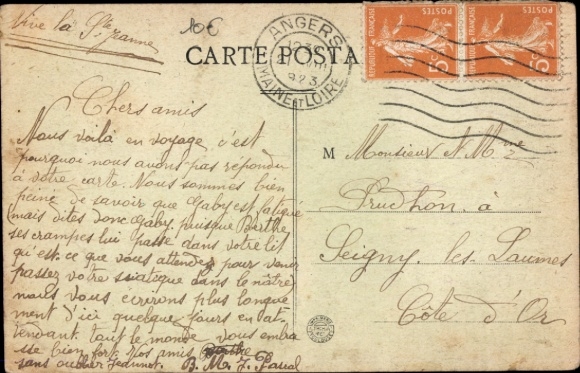 Vive la Ste Jeanne
10€
CARTE POSTA
ANGERS
923
MAINE ET LOIRE
REPUBLIQUE FRANÇAISE
POSTES
5c
REPUBLIQUE FRANÇAISE
POSTES
5c
Chers amis
Nous voilà en voyage c'est
pourquoi nous avons pas répondu
à votre carte. Nous sommes bien
peiné de savoir que Gaby est fatigué
mais dites donc Gaby, puisque Berthe
ses crampes lui passe dans votre lit
qu'est ce que vous attendez pour venir
passer votre siatique dans le nôtre
nous vous écrirons plus longue
ment d'ici quelque jours en at-
tendant. tout le monde vous embra
sse bien fort. Vos amis
sans oublier Jeannot. B. M. J. Pascal
M Monsieur N. Mme
Prudhon à
Seigny les Laumes
Côte d'Or